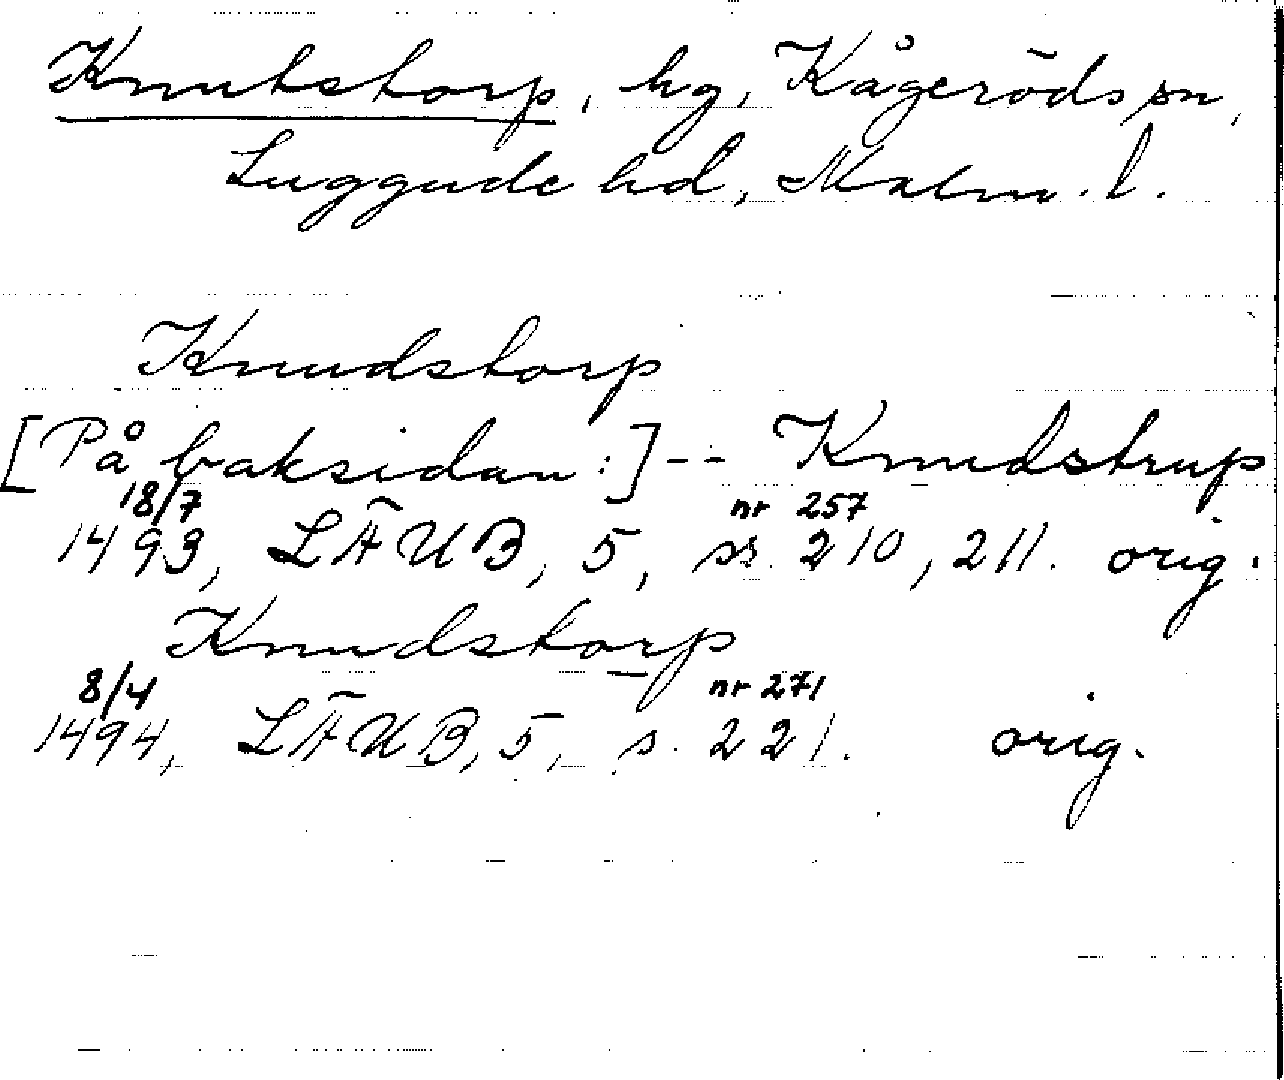 Knutstorp, hg, Kågeröds sn,
Luggude hd, Malm. l.
Knudstorp
[På baksidan:] -- Knudstrup
18/7 nr 257
1493, LÄUB, 5, ss. 210, 211. orig.
Knudstorp
8/4 nr 271
1494, LÄUB, 5, s. 221. orig.